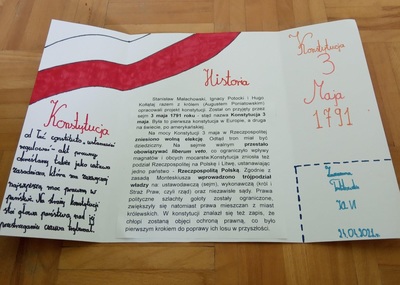 Konstytucja
3
Maja
1791
Historia
Stanisław Małachowski, Ignacy Potocki i Hugo
Kołłątaj razem z królem (Augustem Poniatowskim)
opracowali projekt konstytucji. Został on przyjęty przez
sejm 3 maja 1791 roku - stąd nazwa Konstytucja 3
maja. Była to pierwsza konstytucja w Europie, a druga
na świecie, po amerykańskiej.
Na mocy Konstytucji 3 maja w Rzeczypospolitej
zniesiono wolną elekcję. Odtąd tron miał być
dziedziczny. Na sejmie walnym przestało
obowiązywać liberum veto, co ograniczyło wpływy
magnatów i obcych mocarstw. Konstytucja zniosła też
podział Rzeczpospolitej na Polskę i Litwę, ustanawiając
jedno państwo - Rzeczpospolitą Polską. Zgodnie z
zasadą Monteskiusza wprowadzono trójpodział
władzy na ustawodawczą (sejm), wykonawczą (król i
Straż Praw, czyli rząd) oraz niezawisłe sądy. Prawa
polityczne szlachty gołoty zostały ograniczone,
zwiększyły się natomiast prawa mieszczan z miast
królewskich. W konstytucji znalazł się też zapis, że
chłopi zostaną objęci ochroną prawną, co było
pierwszym krokiem do poprawy ich losu w przyszłości.
Konstytucja
od łac. constituto,
regulować - akt prawny
określany także jako ustawa
zasadnicza, która ma zazwyczaj
najwyższą moc prawną w
państwie. Na straży konstytucji
stoi głowa państwa, nad jej
przestrzeganiem czuwa trybunał.
21.04.2021r.